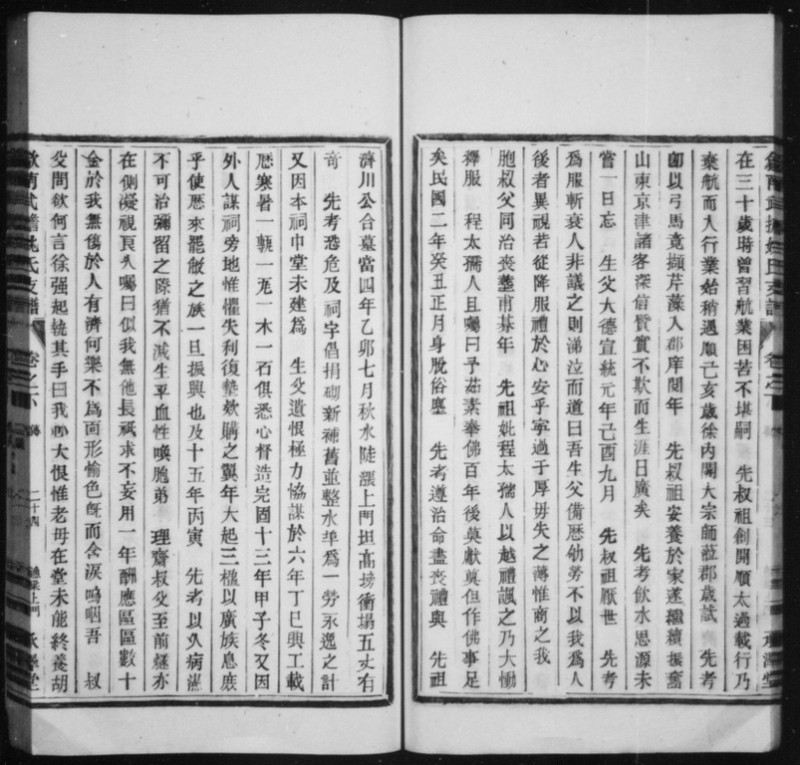 在三十歲時曾習航業困苦不堪嗣　先叔祖創開順太過載行乃
棄航而入行業始稍遇順己亥歲徐內閣大宗師蒞郡歲試　先考
卽以弓馬竟擷芹藻入郡庠閱年　先叔祖安養於家遂繼續振奮
山東京津諸客深信賈實不欺而生涯日廣矣　先考飲水思源未
嘗一日忘　生父大德宣統元年己酉九月　先叔祖厭世　先考
爲服斬衰人非議之則涕泣而道曰吾生父備歷劬勞不以我爲人
後者異視若從降服禮於心安乎寧過于厚毋失之薄惟商之我
胞叔父同治喪塟甫朞年　先祖妣程太孺人以越禮諷之乃大慟
釋服　程太孺人且囑曰予茹素奉佛百年後莫獻奠但作佛事足
矣民國二年癸丑正月身脫俗塵　先考遵治命盡喪禮與　先祖
濟川公合墓當四年乙卯七月秋水陡漲上門坦高塝衝塌五丈有
奇　先考恐危及祠宇倡捐砌新補舊並整水埠爲一勞永逸之計
又因本祠中堂未建爲　生父遺恨極力協謀於六年丁巳興工載
歷寒暑一甎一瓦一木一石俱悉心督造完固十三年甲子冬又因
外人謀祠旁地惟懼失利復墊欵購之翼年大起三楹以廣族息庶
乎使歷來罷敝之族一旦振興也及十五年丙寅　先考以久病漸
不可治彌留之際猶不減生平血性喚胞弟　理齋叔父至前經亦
在側凝視良久囑曰似我無他長祇求不妄用一年酬應區區數十
金於我無傷於人有濟何樂不爲面形愉色旣而含淚嗚咽吾　叔
父問欲何言徐强起執其手曰我心大恨惟老母在堂未能終養胡
卷之
二十四